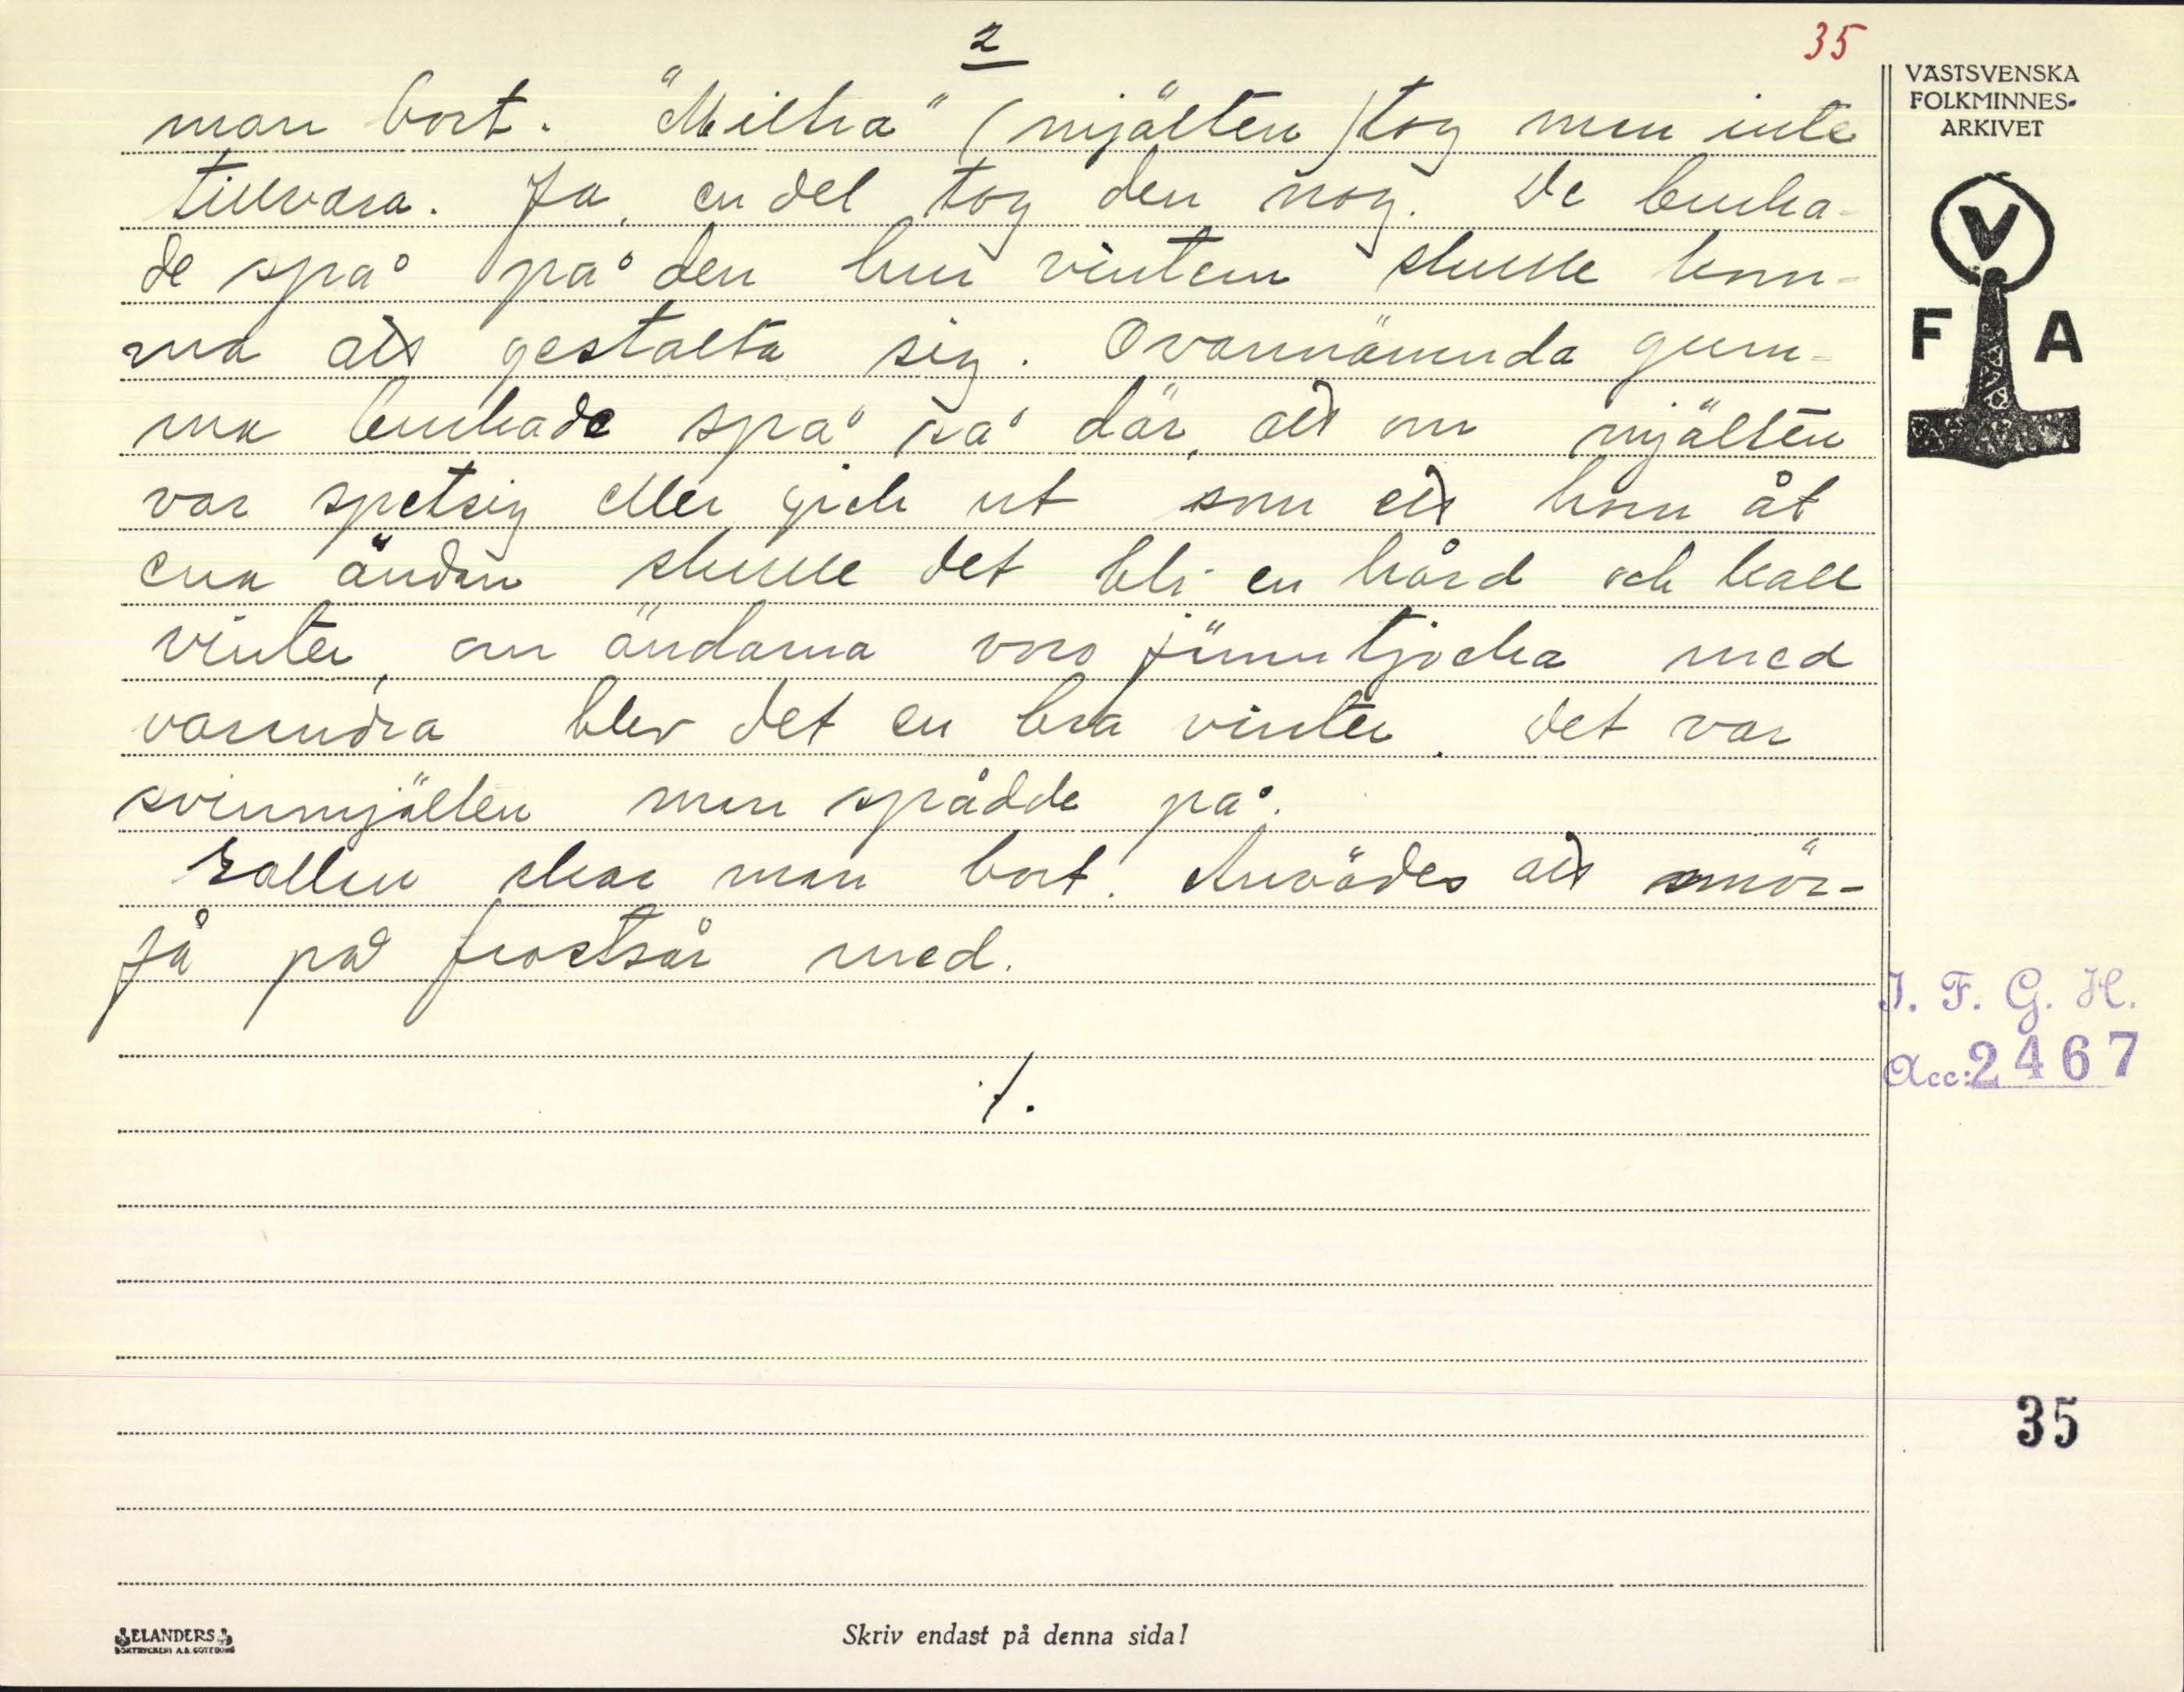 2
35
man bort. "Milka" (mjälten) tog man inte
tillvara. Ja, en del tog den nog. De bruka-
de spå på den hur vintern skulle kom-
ma att gestalta sig. Ovannämnda gum-
ma brukade spå så där, att om mjälten
var spetsig eller gick ut som ett horn åt
ena ändan skulle det bli en hård och kall
vinter, om ändarna voro jämntjocka med
varandra blev det en bra vinter. Det var
svinmjälten man spådde på.
Gallan skar man bort. Anvädes att smör-
ja på frostsår med.
./.
VÄSTSVENSKA
FOLKMINNES-
ARKIVET
V
F A
I. F. G. H.
Acc: 2467
35
ELANDERS
BOKTRYCKERI A.B. GÖTEBORG
Skriv endast på denna sida!